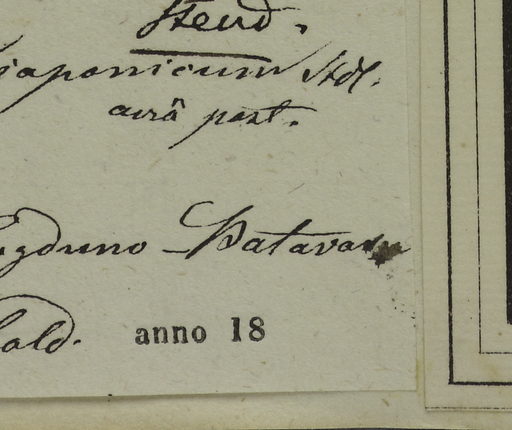 Steud.
japonicum Stdl.
avrâ part.
Lugduno Batavorum
bold.
anno 18